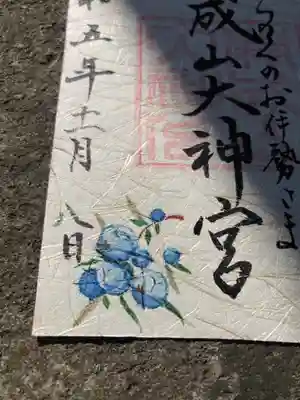 くのお伊勢さま
成山大神宮
五年十一月
八日